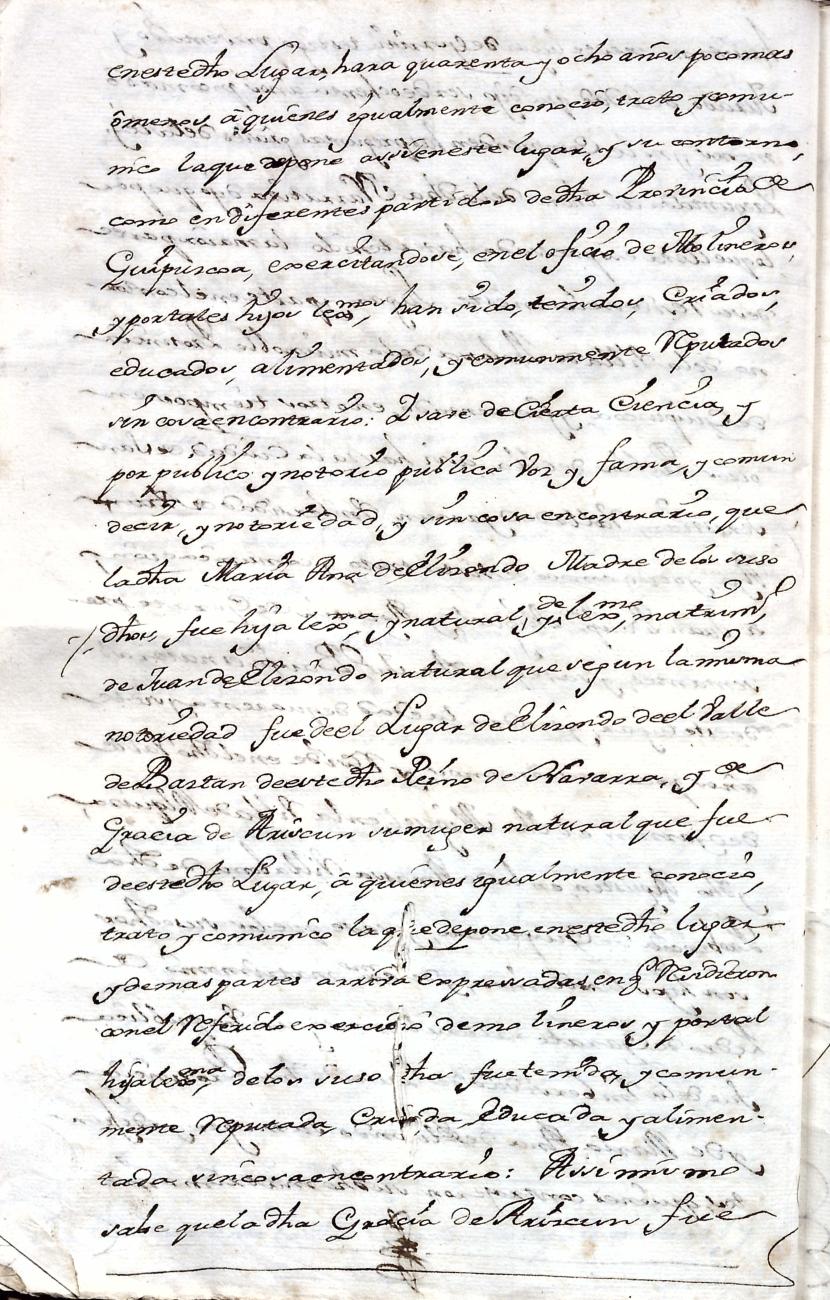 en este dho Lugar, hara quarenta y ocho años poco mas
ô menos, â quienes igualmente conocio, trato y comu-
nico la que depone assi en este lugar, y su contorno,
como en diferentes partidos de dha Provincia de
Guipuscoa, exercitandose, en el oficio de Molineros,
y por tales hijos lexmos, han sido, tenidos, Criados,
educados, alimentados, y comunmente Reputados
sin cosa en contrario: Y save de Cierta Ciencia, y
por publico y notorio publica Voz y fama, y comun
decir, y notoriedad, y sin cosa en contrario, que
la dha Maria Ana de Elizondo Madre de los suso
dhos, fue hija lexma, y natural, y de lexmo, matrim.l
de Juan de Elizondo natural que segun la misma
notoriedad fue de el Lugar de Elizondo de el Valle
de Bastan de este dho Reino de Navarra, y de
Gracia de Ariscun su muger natural que fue
de este dho Lugar, â quienes igualmente conocio,
trato y comunico la que depone en este dho lugar,
y demas partes arriva expressadas, en q Residieron
con el Referido exercicio de molineros, y por tal
hija lexma, de los suso dha fue tenida, y comun-
mente Reputada, Criada, Educada y alimen-
tada sin cosa en contrario: Assi mismo
sabe que la dha Gracia de Ariscun fue